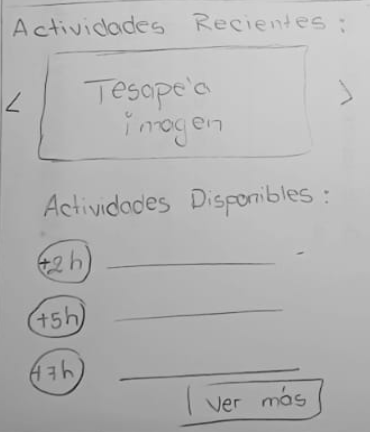 Actividades Recientes:
<
Tesape'a
imagen
>
Actividades Disponibles:
+2h
+5h
+7h
Ver más